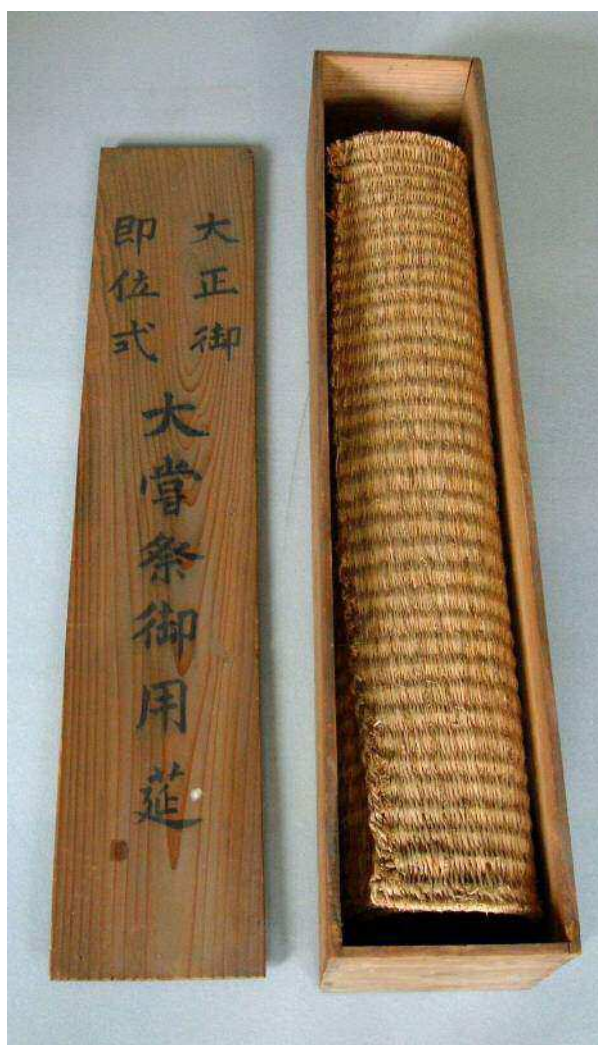 大正御
即位式
大嘗祭御用莚